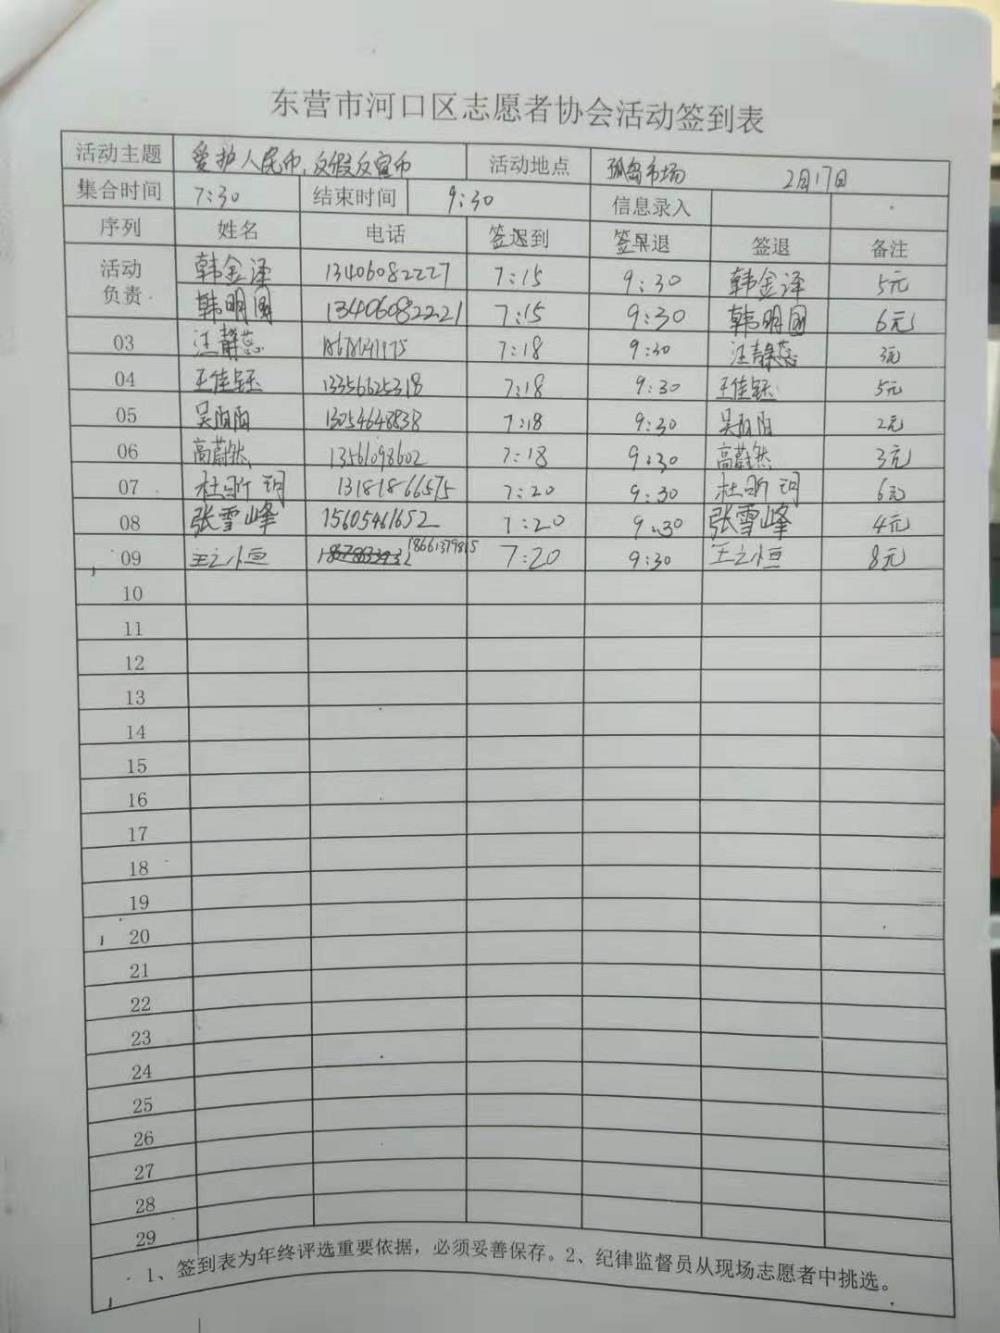 东营市河口区志愿者协会活动签到表
活动主题 爱护人民币,反假反宣币 活动地点 孤岛市场 2月17日
集合时间 7:30 结束时间 9:30 信息录入
序列 姓名 电话 签到 签退 签退 备注
活动负责 韩金泽 13406082227 7:15 9:30 韩金泽 5元
韩明国 13406082221 7:15 9:30 韩明国 6元
03 汪静蕊 7:18 9:30 汪静蕊 3元
04 王佳钰 13356625318 7:18 9:30 王佳钰 5元
05 吴阳阳 13054648838 7:18 9:30 吴阳阳 2元
06 高蔚然 13561098602 7:18 9:30 高蔚然 3元
07 杜昕玥 13181866575 7:20 9:30 杜昕玥 6元
08 张雪峰 15605461652 7:20 9:30 张雪峰 4元
09 王之恒 18661379815 7:20 9:30 王之恒 8元
10
11
12
13
14
15
16
17
18
19
20
21
22
23
24
25
26
27
28
29
1、签到表为年终评选重要依据，必须妥善保存。2、纪律监督员从现场志愿者中挑选。